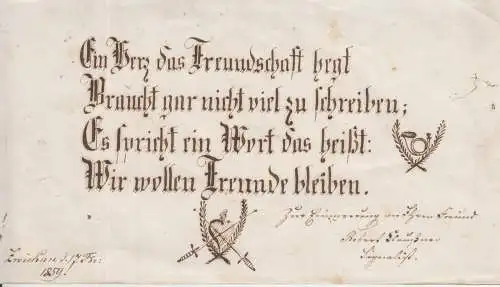 Ein Herz das Freundschaft hegt
Braucht gar nicht viel zu schreiben;
Es spricht ein Wort das heißt:
Wir wollen Freunde bleiben.
Zur Erinnerung an Ihren Freund
Robert
Signalist.
Zwickau d. 17
1859.